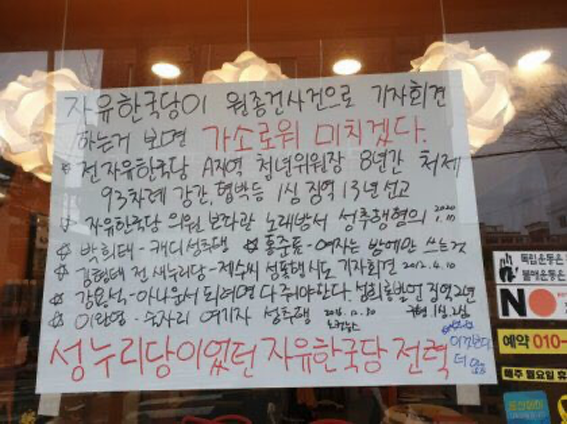 자유한국당이 원종건사건으로 기자회견
하는거 보면 가소로워 미치겠다.
☆ 전자유한국당 A지역 청년위원장 8년간 처제
93차례 강간, 협박등 1심 징역 13년 선고
☆ 자유한국당 의원 보좌관 노래방서 성추행혐의 2020 1.10
☆ 박희태-캐디성추행 ☆ 홍준표-여자는 밤에만 쓰는것
☆ 김형태 전 새누리당-제수씨 성폭행시도 기자회견 2012.4.10
☆ 강용석-아나운서 되려면 다 줘야한다. 성희롱발언 징역2년
구형 1심 2심
☆ 이완영-술자리 여기자 성추행
성누리당이었던 자유한국당 전력
이것보다
더
독립운동은
불매운동은
NO
예약 010-
매주 월요일 휴